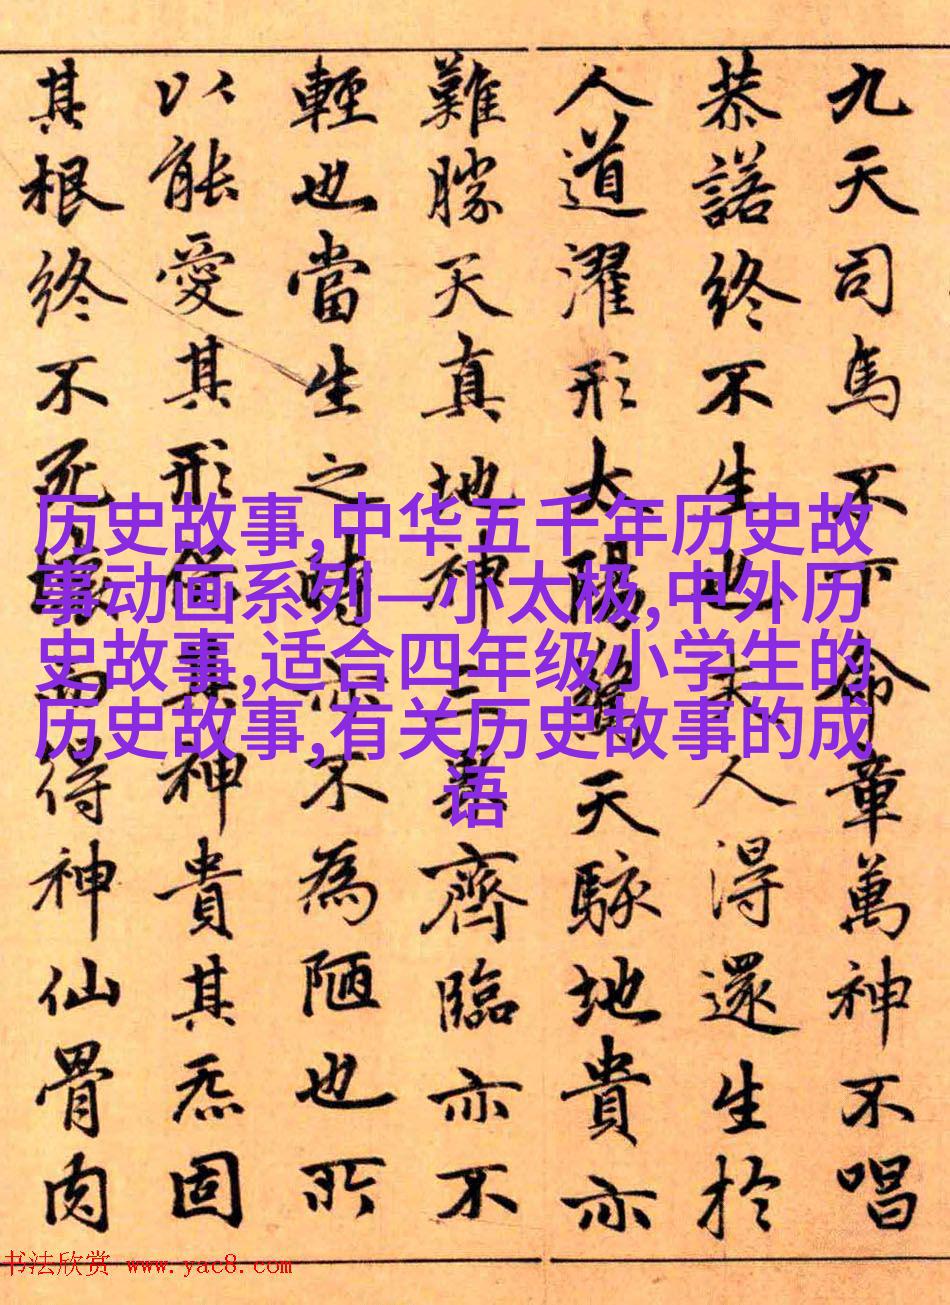 九天司馬不下命章萬神不唱
恭諾終不生也夫人得還生於
人道濯形太陽驚天駭地貴亦
難勝天真地神三界齊臨亦不
輕也當生之時亦不為陋也所
以能愛其形保其神貴其炁固
其根終不死壞而得神仙骨肉
历史故事,中华五千年历史故
事动画系列—小太极,中外历
史故事,适合四年级小学生的
历史故事,有关历史故事的成
语
书法欣赏 www.yac8.com